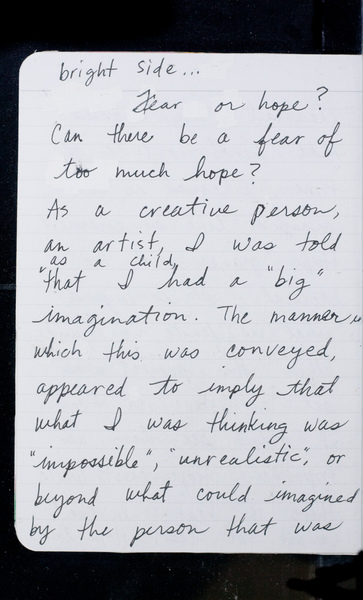 bright side...
Fear or hope?
Can there be a fear of
too much hope?
As a creative person,
an artist, I was told
as a child,
"that I had a "big"
imagination. The manner
which this was conveyed,
appeared to imply that
what I was thinking was
"impossible", "unrealistic", or
beyond what could imagined
by the person that was